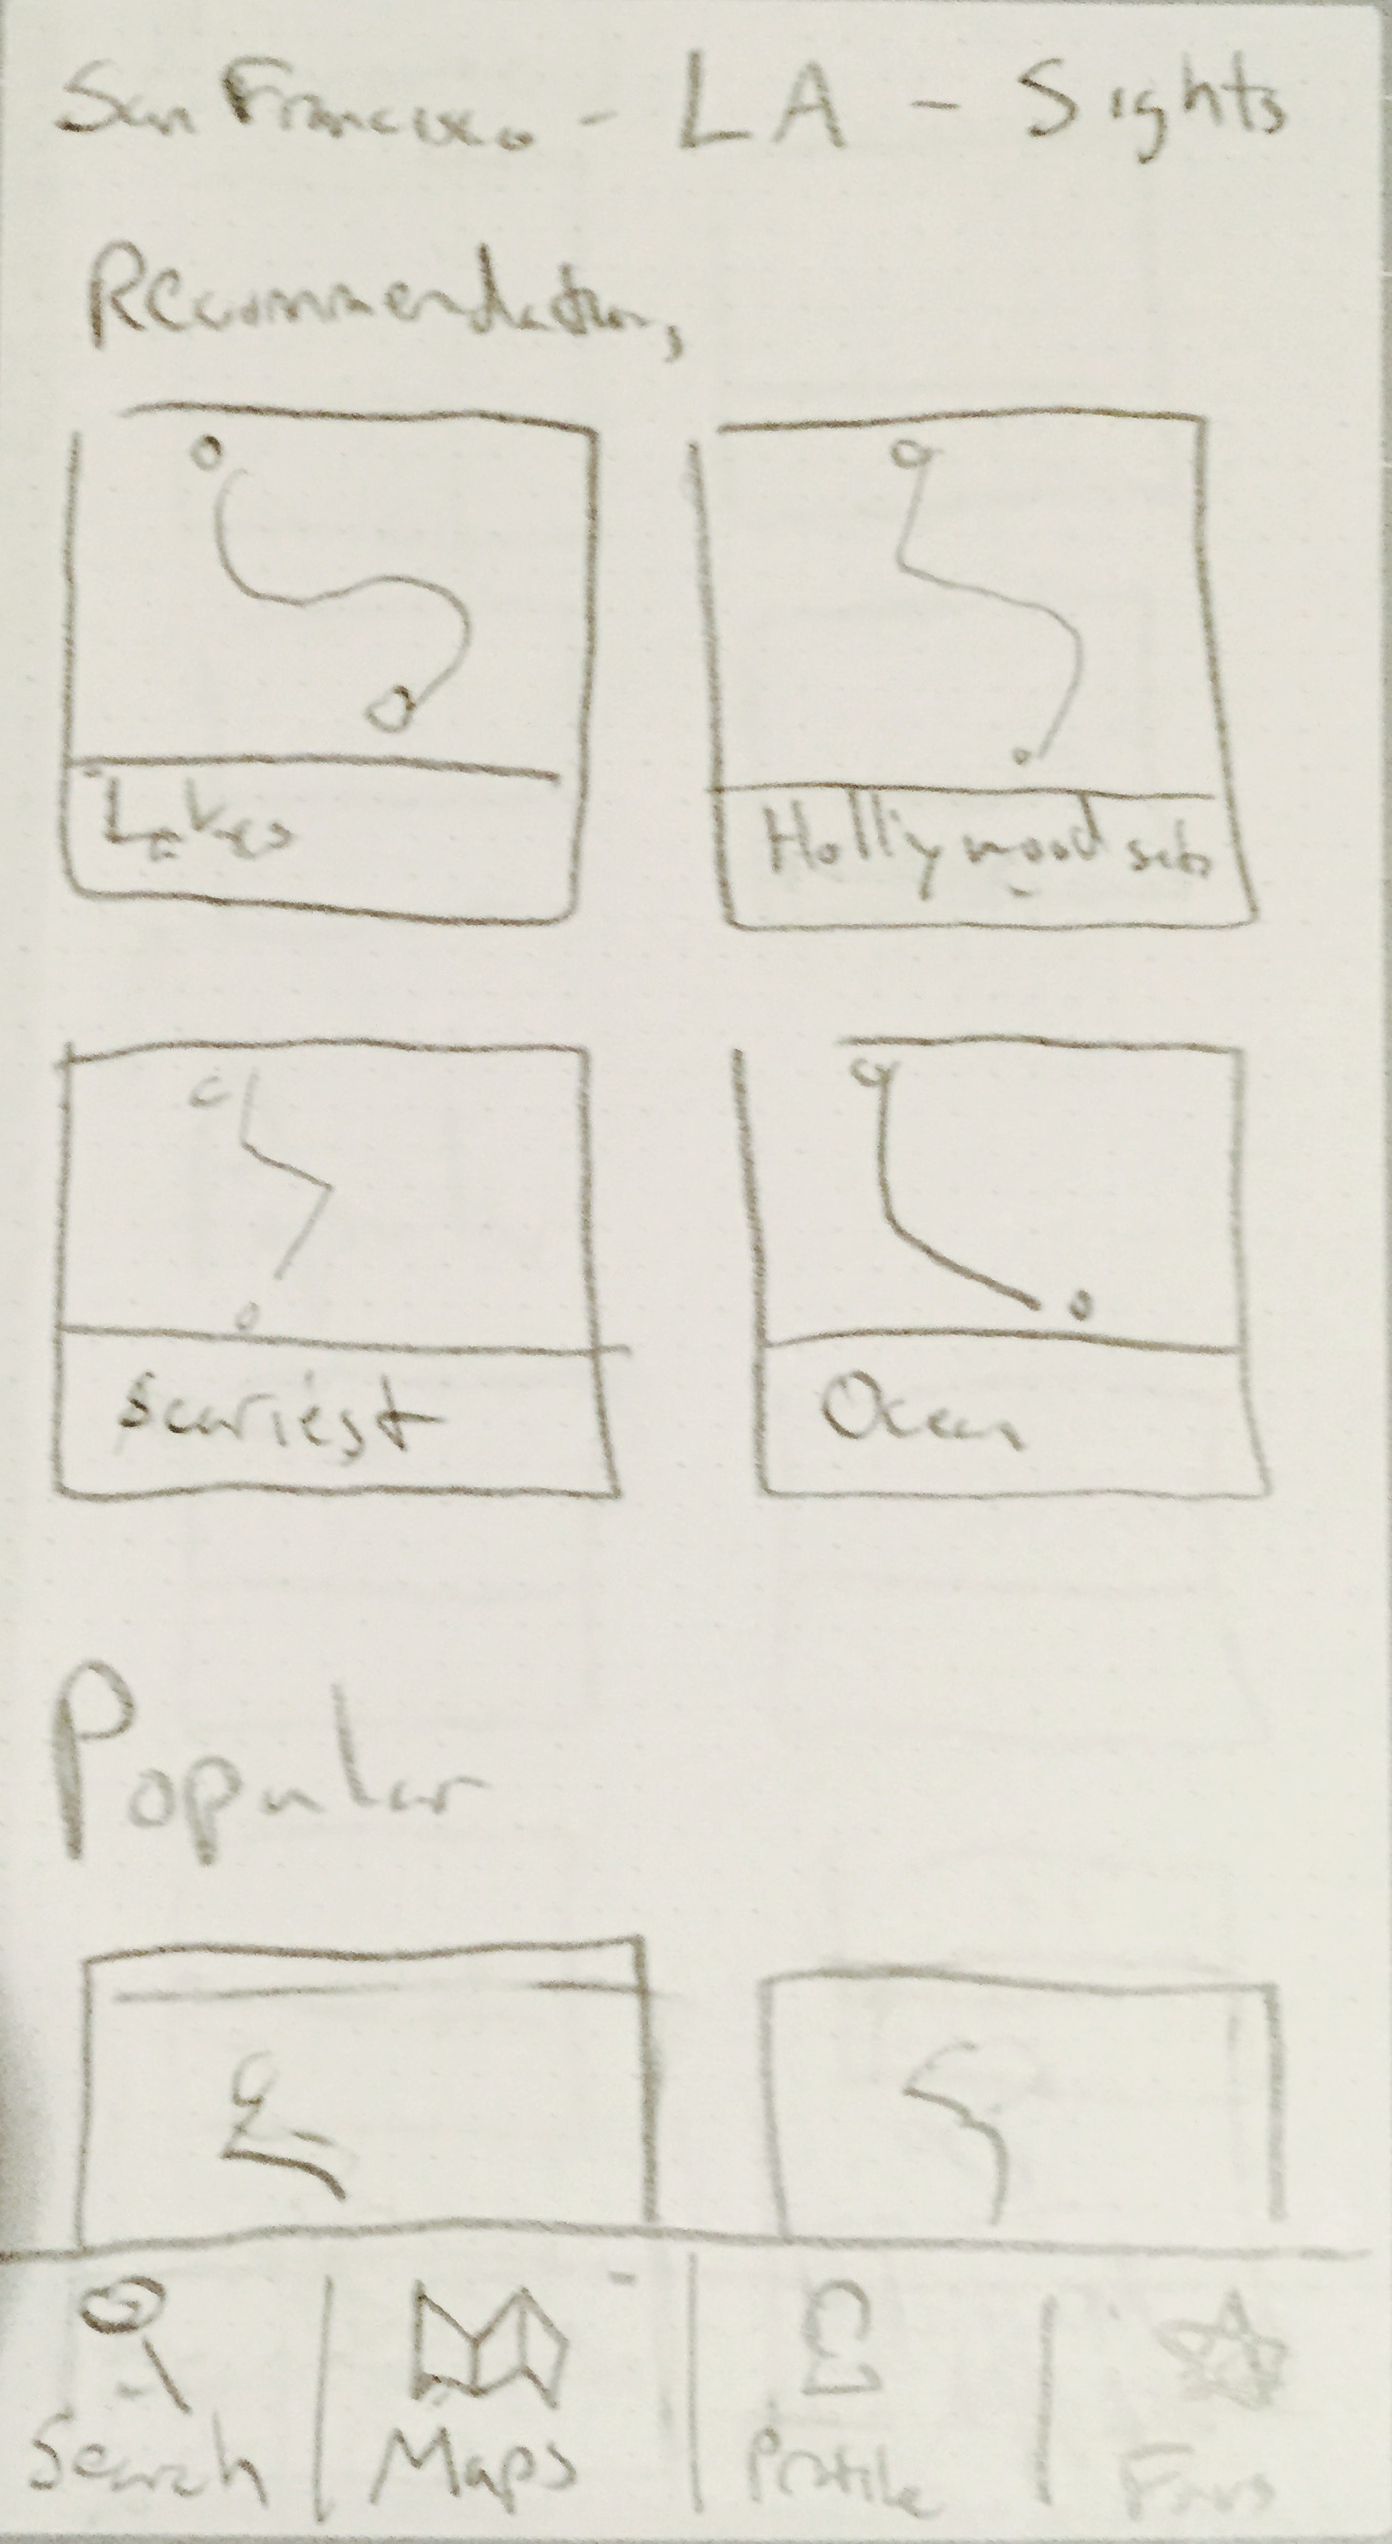 San Francisco - LA - Sights
Recommendations
Lakes
Hollywood sets
Scariest
Ocean
Popular
Search
Maps
Profile
Favs